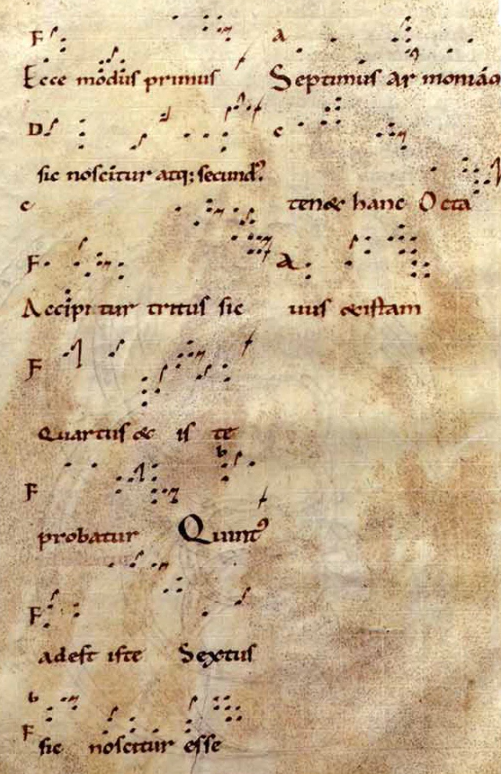 F
Ecce modus primus
D
sic noscitur atq; secund9
c
F
Accipitur tritus sic
F
Quartus & is te
b
F
probatur Quint9
F
adest iste Sextus
b
F
sic noscitur esse
a
Septimus ar moniaco
c
ten& hanc Octa
a
uus &istam